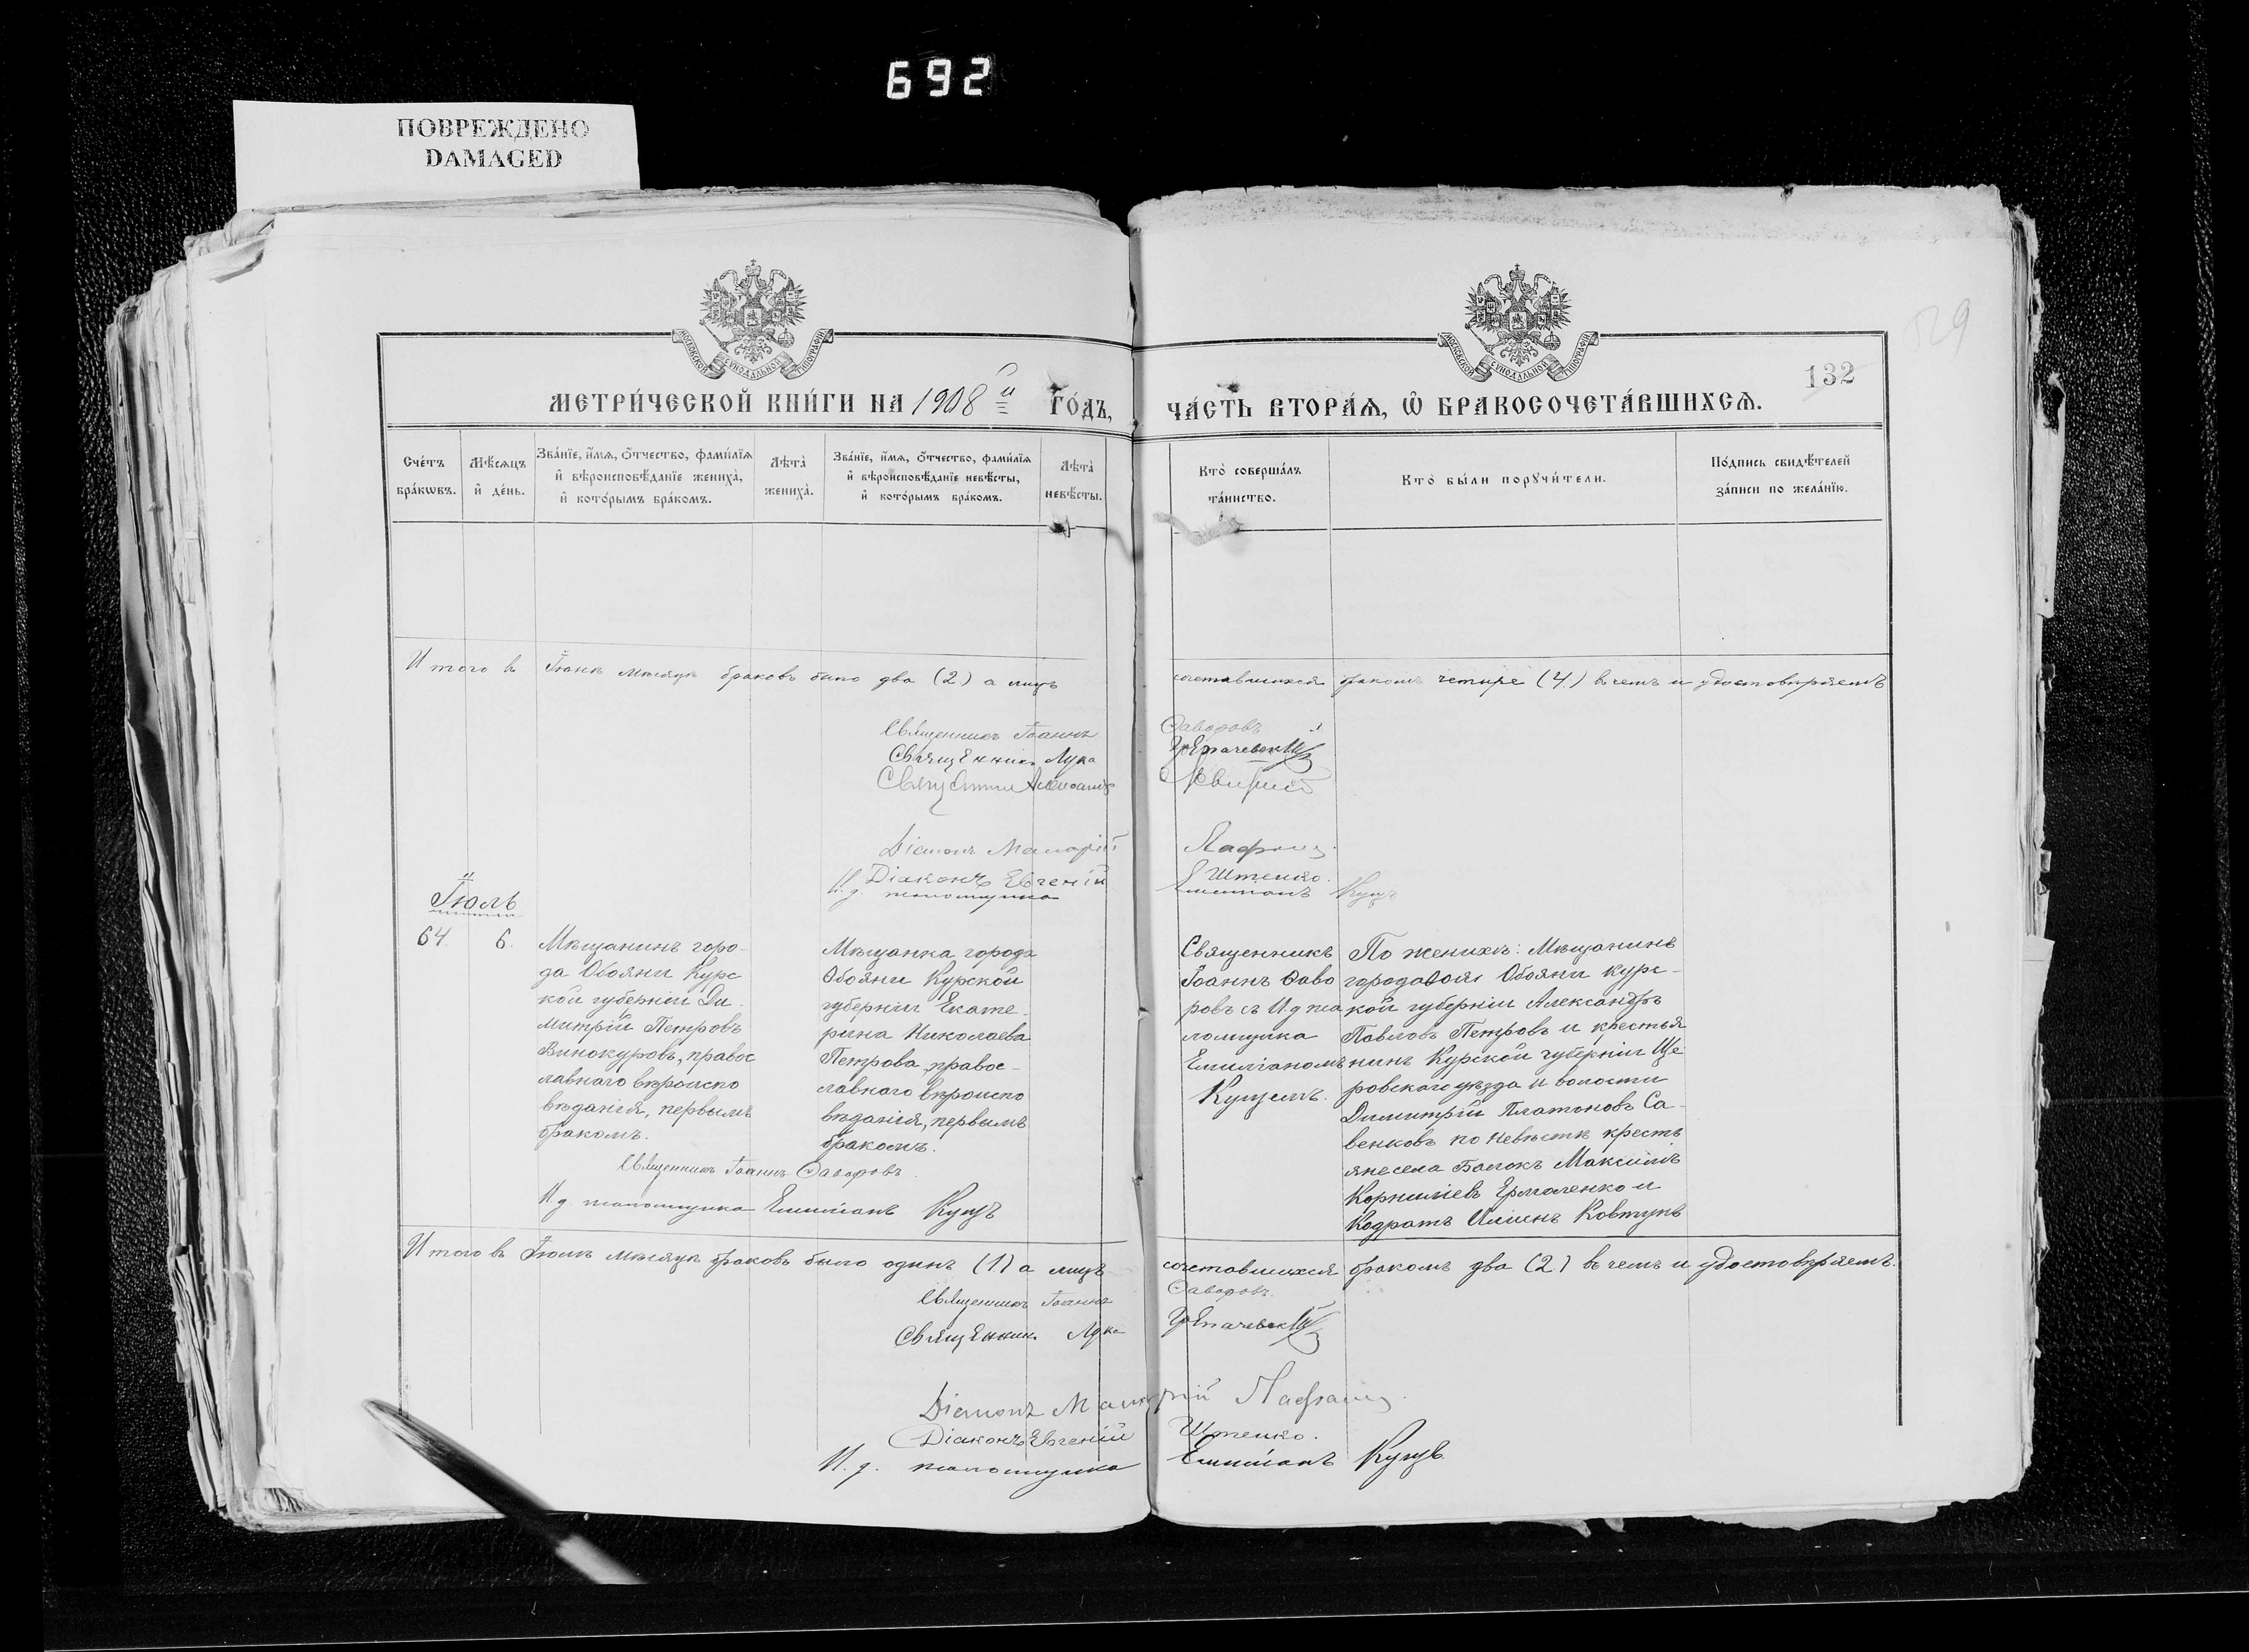 692
ПОВРЕЖДЕНО
DAMAGED
МОСКОВСКОЙ СѴНОДАЛЬНОЙ ТИПОГРАФІИ
МОСКОВСКОЙ СѴНОДАЛЬНОЙ ТИПОГРАФІИ
132
МЕТРИ́ЧЕСКОЙ КНИ́ГИ НА 1908 й ГО́ДЪ,
ЧА́СТЬ ВТОРА́Ѧ, Ѡ҆ БРАКОСОЧЕТА́ВШИХСѦ.
Сче́тъ бра́кѡвъ.
Мѣ́сѧцъ и҆ де́нь.
Зва́нїе, и҆́мѧ, ѻ҆́тчество, фами́лїѧ
и҆ вѣроисповѣ́данїе жениха̀,
и҆ кото́рымъ бра́комъ.
Лѣта̀ жениха̀.
Зва́нїе, и҆́мѧ, ѻ҆́тчество, фами́лїѧ
и҆ вѣроисповѣ́данїе невѣ́сты,
и҆ кото́рымъ бра́комъ.
Лѣта̀ невѣ́сты.
Кто̀ соверша́лъ
та́инство.
Кто̀ бы́ли порꙋчи́тели.
По́дпись свидѣ́телей
за́писи по жела́нїю.
Итого в Іюнѣ мѣсяцѣ браковъ было два (2) а лицъ сочетавшихся бракомъ четыре (4) в чемъ и удостовѣряемъ
Священникъ Іоаннъ Ѳаворовъ
Священникъ Лука
Діаконъ
Діаконъ Евгеній Штепко.
И. д. псаломщика Емиліанъ Куцъ
Іюль
64. 6.
Мѣщанинъ горо-
да Обояни Курс
кой губерніи Ди-
митрій Петровъ
Винокуровъ, правос
лавнаго вѣроиспо
вѣданія, первымъ
бракомъ.
Мѣщанка города
Обояни Курской
губерніи Екате-
рина Николаева
Петрова, правос-
лавнаго вѣроиспо
вѣданія, первымъ
бракомъ.
Священникъ
Іоаннъ Ѳаво
ровъ съ И.д пса
ломщика
Емиліаномъ
Куцемъ.
По женихѣ: Мѣщанинъ
города Обояни Курс-
кой губерніи Александръ
Павловъ Петровъ и крестья
нинъ Курской губерніи Ще
ровскаго уѣзда и волости
Димитрій Платоновъ Са-
венковъ по невѣстѣ кресть
яне села Балокъ Максимъ
Корниліевъ Ермоленко и
Кодратъ Иліинъ Ковтунъ
Священникъ Іоаннъ Ѳаворовъ.
И.д псаломщика Емиліанъ Куцъ
Итого въ Іюлѣ мѣсяцѣ браковъ было одинъ (1) а лицъ сочетавшихся бракомъ два (2) в чемъ и удостовѣряемъ.
Священникъ Іоаннъ Ѳаворовъ.
Священник Лука
Діаконъ
Діаконъ Евгеній Штепко.
И. д. псаломщика Емиліанъ Куцъ.